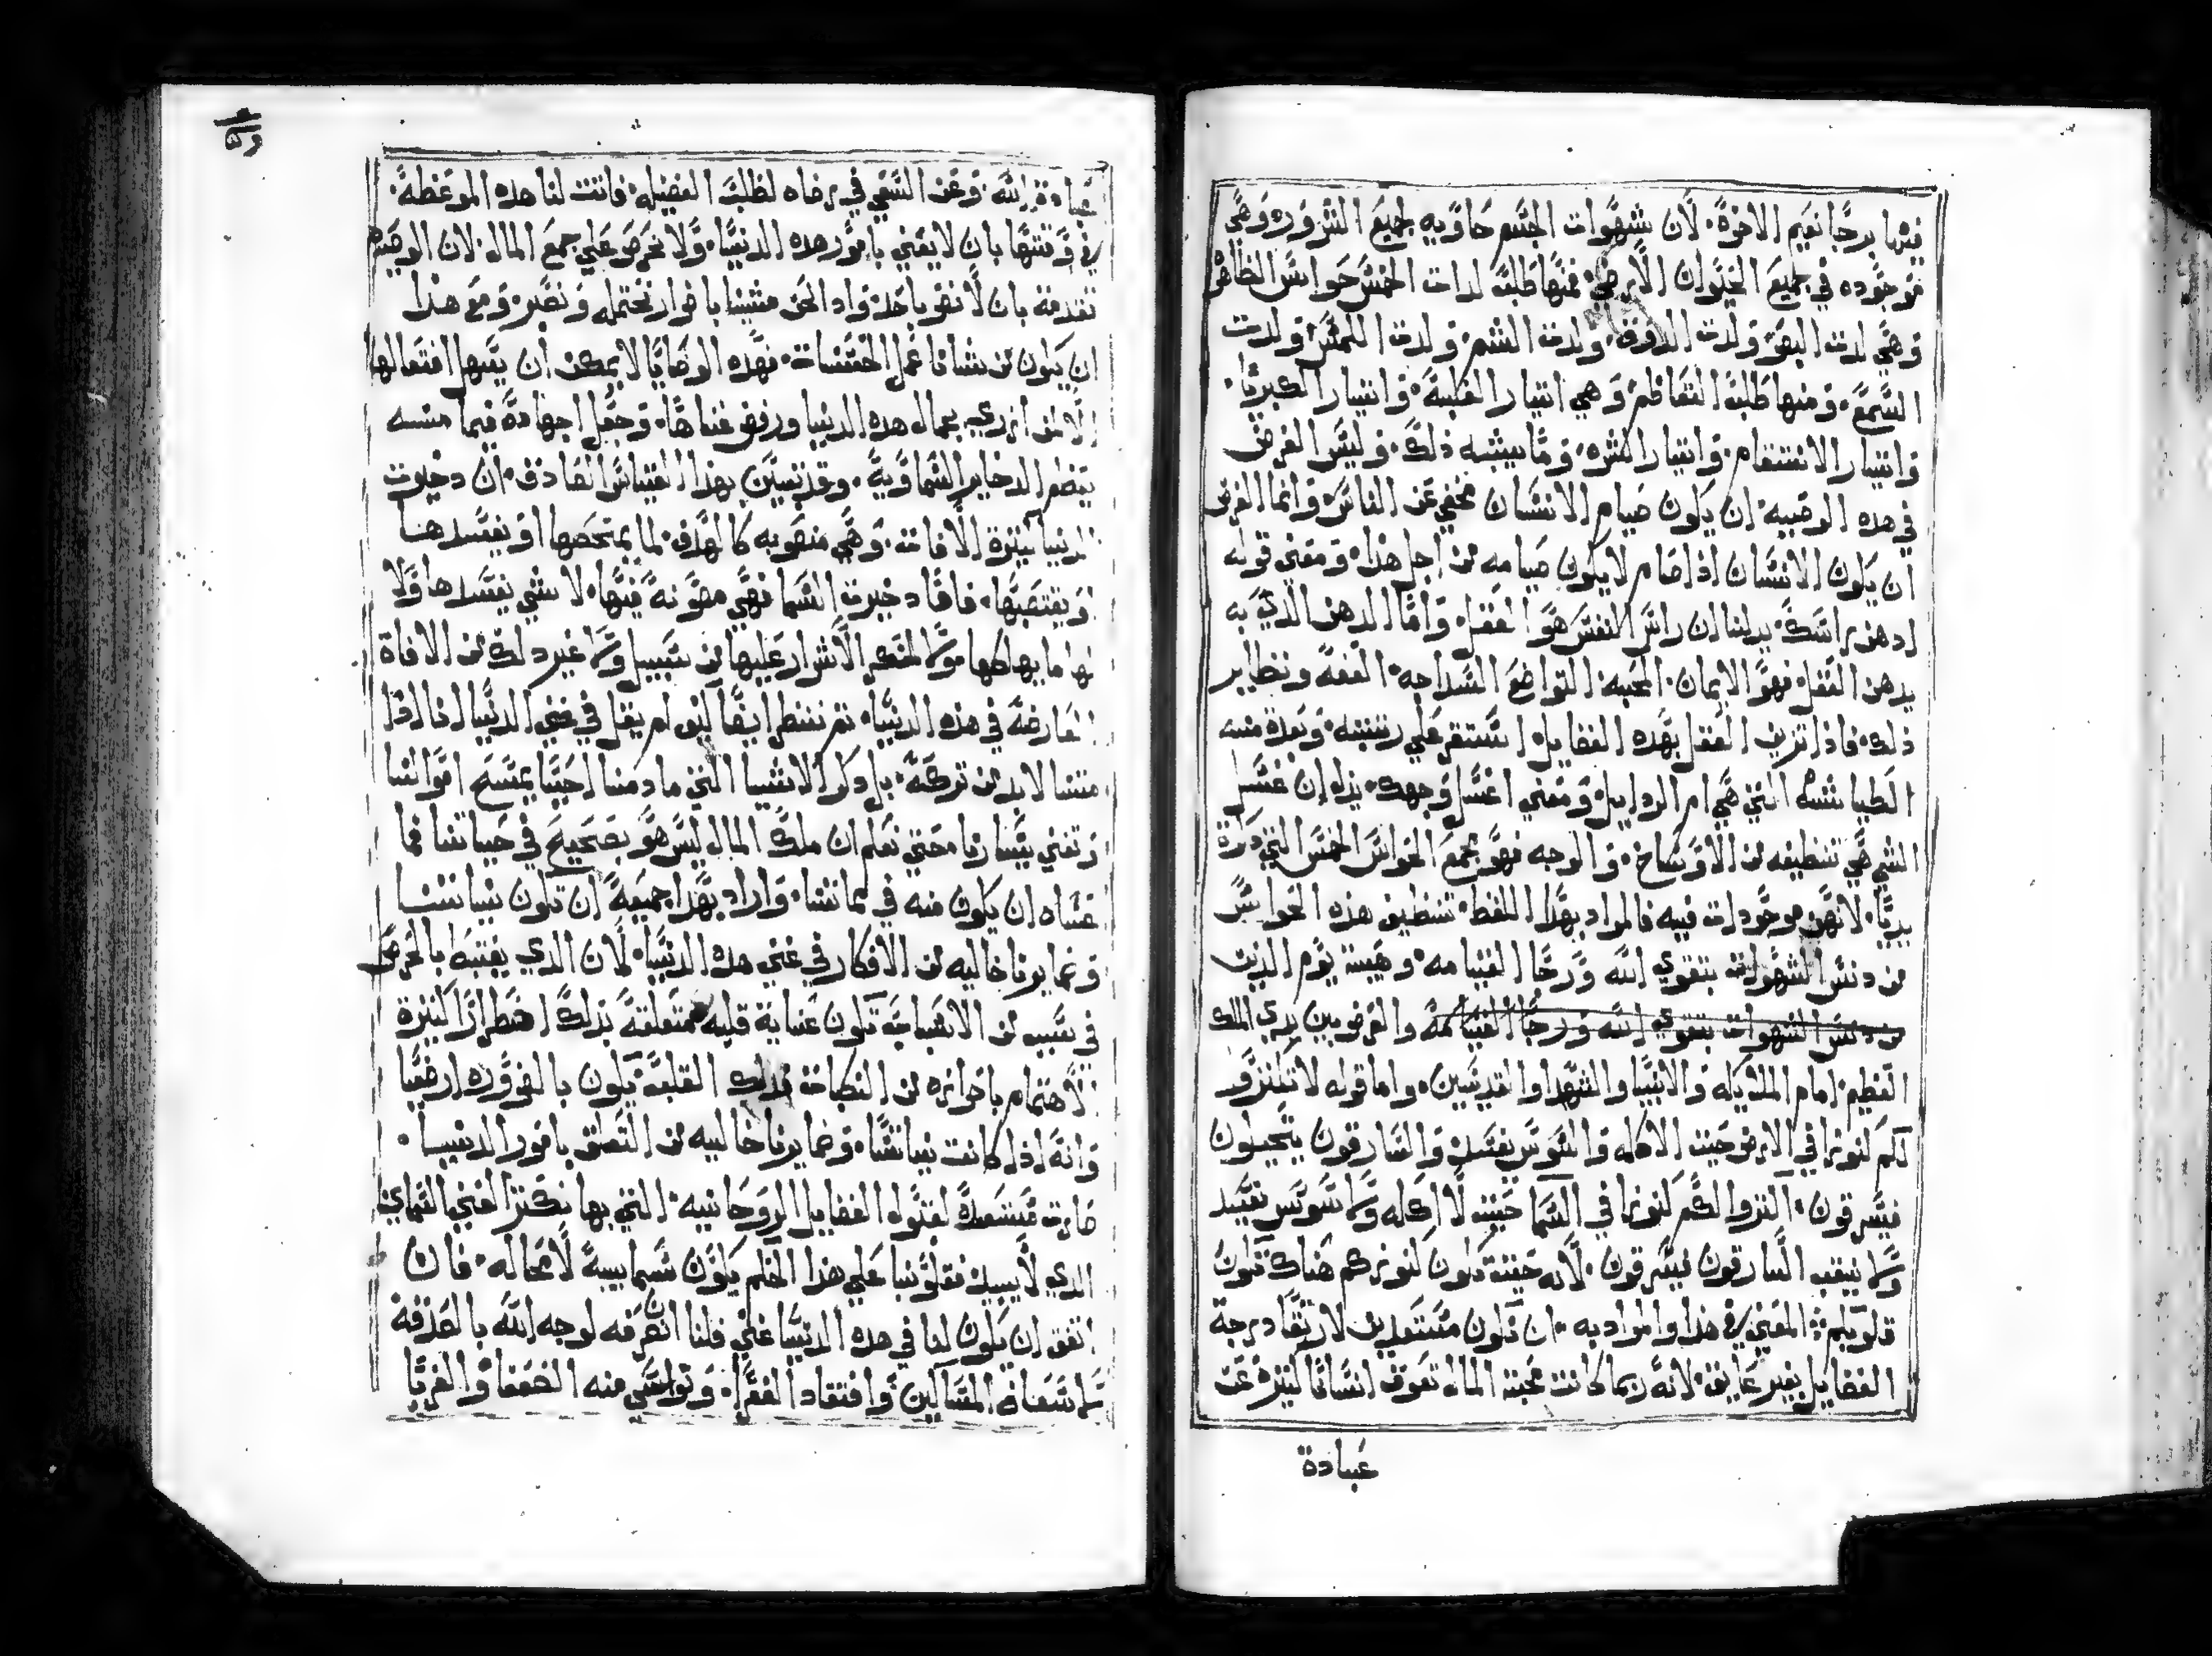 فيها برجا نعيم الاخرة. لان شهوات الجسم حاويه لجميع الشرور. وهي
موجوده في جميع الحيوان الارضي. فمنها طلب لدات الخمس حواس الظاهره
وهي لدت البصر ولدت الدوق. ولدت الشم. ولدت اللمس. ولدت
السمع. ومنها طلب التعاظم. وهي اتيار الغلبة. واتيار الكبريا.
واتيار الانتقام. واتيار الشره. وما يشبه ذلك. وليس الغرض
في هده الوصيه. ان يكون صيام الانسان مخفي عن الناس. وانما الغرض
ان يكون الانسان اذا صام لا يكون صيامه من اجل هذا. ومعني قوله
ادهن راسك. يدلنا ان راس النفس هو العقل. واما الدهن الذي به
يدهن العقل فهو الايمان. المحبه. التواضع السداجه. العفه ونظاير
ذلك. فاذا تزين العقل بهده الفضايل استقر علي رتبته. وبعد منه
الطياشه التي هي ام الردايل. ومعني اغسل وجهك. يدل ان غسل
الشي هي تنظيفه من الاوساخ. والوجه فهو مجمع الحواس الخمس التي دكرة
بديا. لانهن موجودات فيه فالمراد بهدا اللفظ. تنظيف هذه الحواس
من دنس الشهوات بتقوي الله ورجا القيامه. وهيبة يوم الدين
من دنس الشهوات بتقوي الله ورجا القيامة والعرض بين يدي الملك
العظيم. امام الملايكه والانبيا والشهدا والقديسين. واما قوله لا تكنزو
لكم كنوزا في الارض حيت الاكله والسوس يفسد. والسارقون يتحيلون
فيسرقون. اكنزوا لكم كنوزا في السما حيت لا اكله ولا سوس يفسد
ولا ينقب السارقون فيسرقون. لانه حيت تكون كنوزكم هناك تكون
قلوبكم. المعني في هذا والمراد به. ان نكون مستعدين لارتقا درجة
الفضايل بغير عايق. لانه ربما كانت محبت المال تعوق انسانا كتيره عن
عبادة
عبادة الله. وعن السعي في رضاه لطلب الفضيله. فاتت لنا هده الموعظة.
في وقتها بان لا يعني بامور هده الدنيا. ولا نحرص علي جمع المال. لان الوصيه
تقدمة بان لا نضر باحد. واد الحق مننا باضرار نحتمل ونصبر. ومع هذا
ان يكون من شاننا عمل الحسنات. فهده الوصايا لا يمكن ان يسهل افتعالها
الا لمن ازدري بجمال هده الدنيا ورفض غناها. وجعل اجهاده فيما منه
ينظم الدخاير السماوية. وقد تبين بهدا القياس الصادق. ان دخيرت
الدنيا كتيرة الافات. وهي منصوبه كالهدف. لما يمتحصها او يفسدها
ويغتصبها. فاما دخيرت السما فهي مصونة فيها. لا شي يفسدها ولا
لها ما يهلكها. ولا لمكر الاشرار عليها من سبيل ولا غير دلك من الافاة
العارضة في هذه الدنيا. تم ننظر ايضا لانه لم يقل في غني الدنيا انما اذا
متنا لا بد من تركه. بل دكر الاشيا التي ما دمنا احيا يمسح اموالنا
وتفني يسارنا. حتي نعلم ان ملك المال ليس هو بصحيح في حياتنا فما
عساه ان يكون منه في مماتنا. واراد بهدا جميعه ان تكون نياتنا
وضمايرنا خاليه من الافكار في غني هده الدنيا. لان الذي يغتبط بالحرص
في سبب من الاسباب تكون عناية قلبه متعلقة بذلك اضطرارا لكترة
الاهتمام باحرازه من النكبات فدلك القلب يكون بالضروره ارضيا
وانه اذا كانت نياتنا. وضمايرنا خاليه من التعلق بامور الدنيا.
صارت مستعدة لقبول الفضايل الروحانيه. التي بها نكنز الغني السماي
الذي لا يبيد. فقلوبنا علي هذا الحكم يكون سماييه لا محاله. فان
اتفق ان يكون لنا في هده الدنيا غني فلنا ان نصرفه لوجه الله بالصدقة
لاسعاف المساكين. وافتقاد الفقرا. ونواسي منه الضعفا والغربا